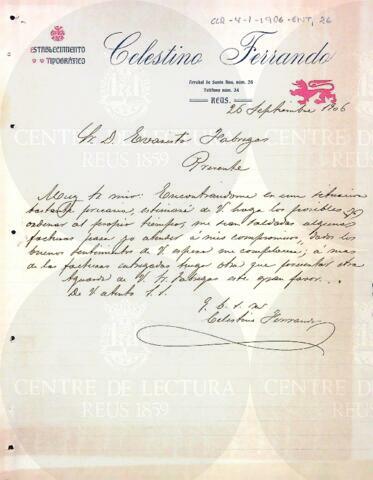 CLR-4-1-1906-ENT, 26
ESTABLECIMIENTO
TIPOGRÁFICO
Celestino Ferrando
Arrabal de Santa Ana, núm. 26
Teléfono núm. 34
REUS,
26 Septiembre 1906
Sr. D. Evaristo Fabregas
Presente
Muy Sr mio: Encontrandome en una situacion
bastante precaria, estimaré de V. haga los posibles
ordenar al propio tiempo, me sean saldadas algunas
facturas para yo atender á mis compromisos, dados los
buenos sentimientos de V. espero me complacerá; á mas
de las facturas entregadas tengo otra que presentar
Aguarda de V. Sr. Fabregas este gran favor
De V. atento S. S.
q. b. s. m.
Celestino Ferrando
CENTRE DE LECTURA
REUS 1859
CENTRE DE LECTURA
REUS 1859